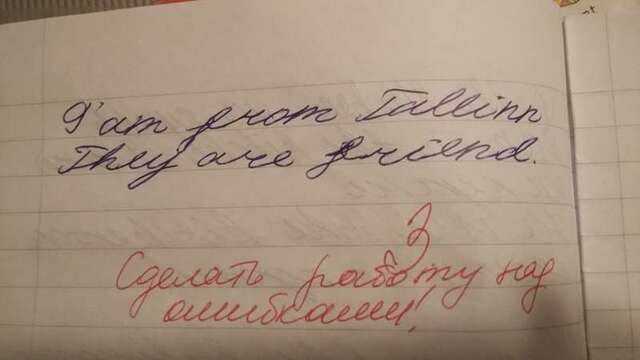 I'am from Tallinn
They are friend.
3
Сделать работу над
ошибками!